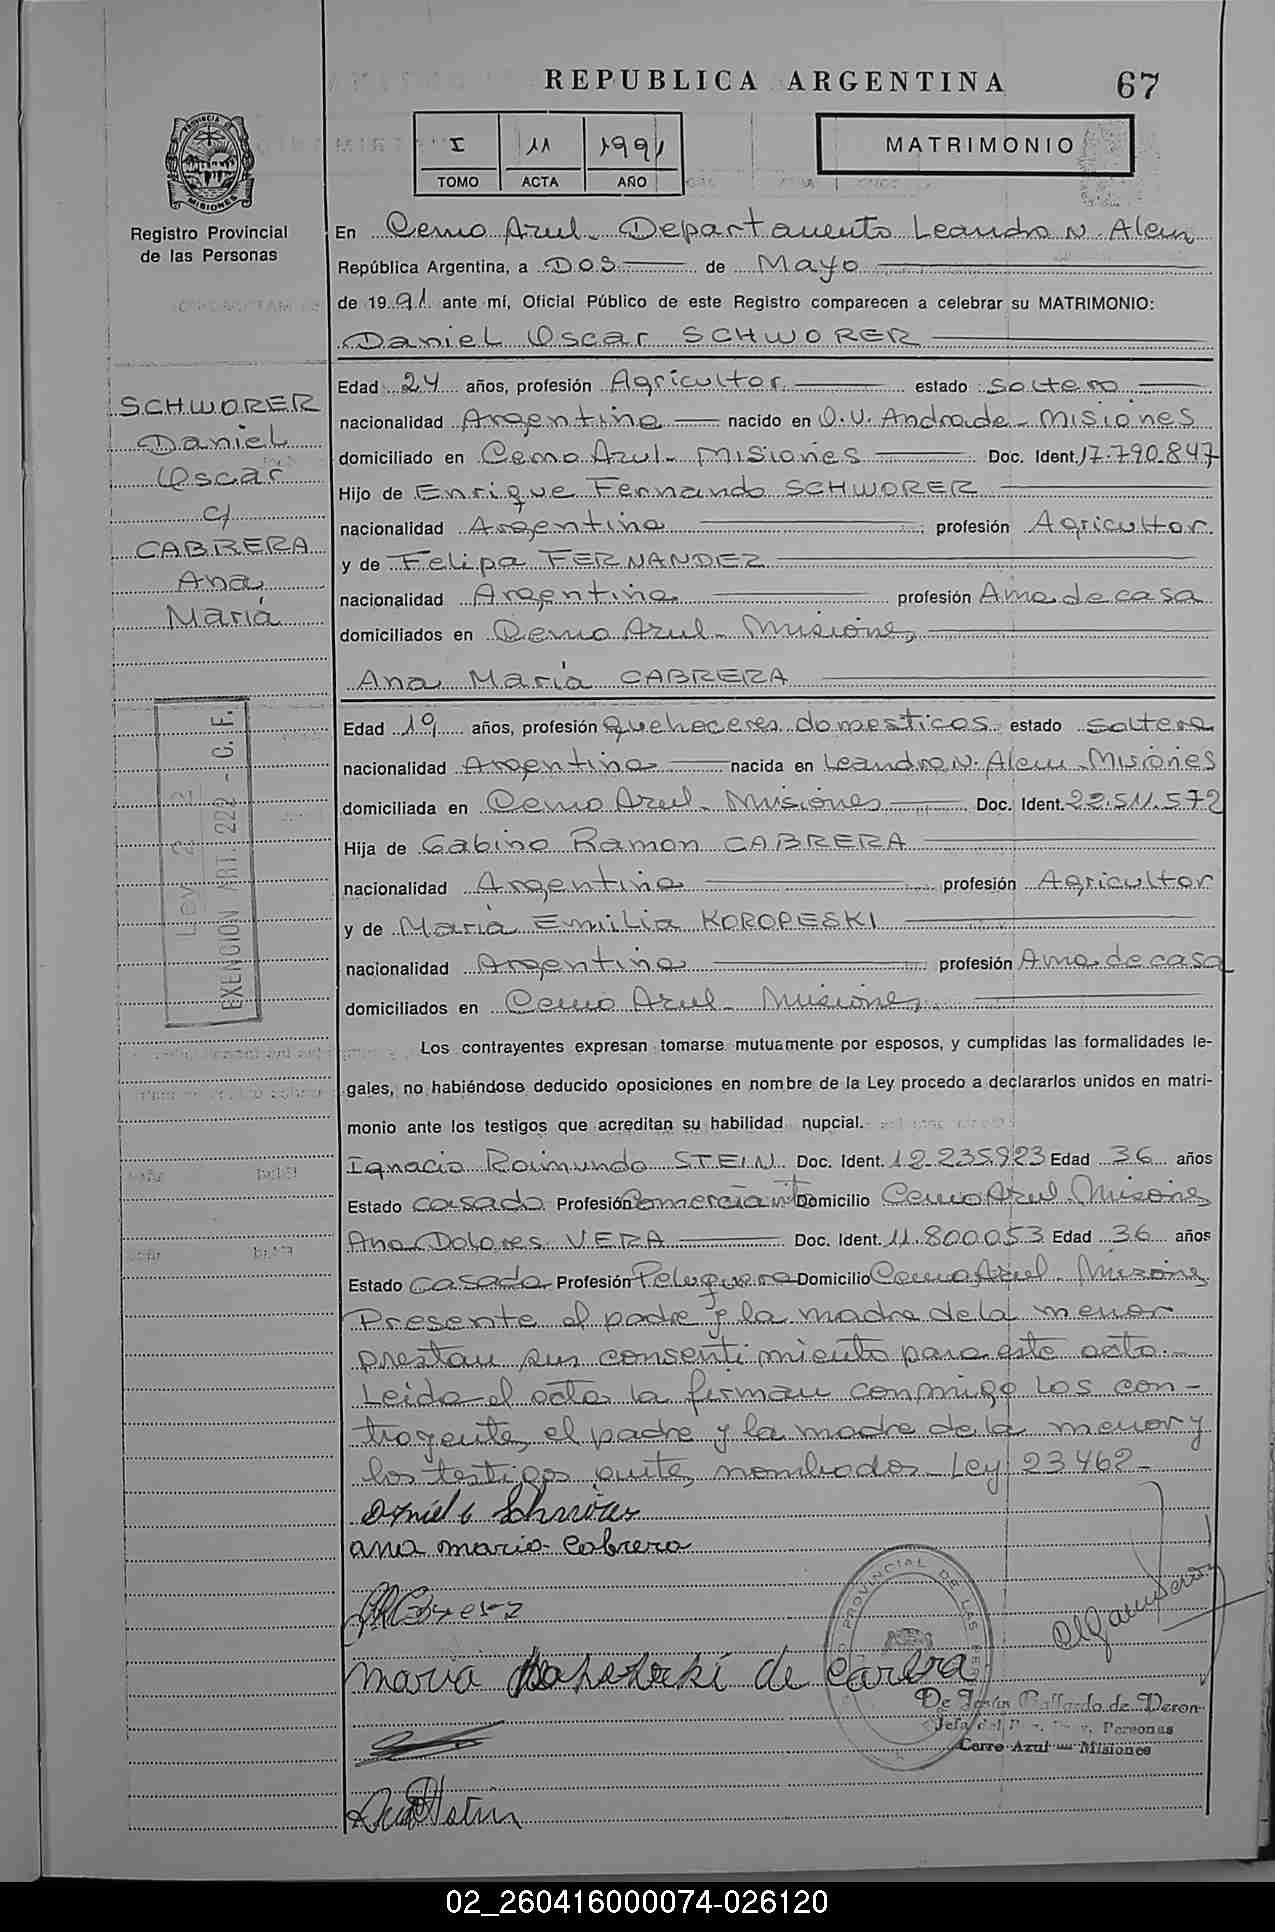 REPUBLICA ARGENTINA
67
I 11 1991
TOMO ACTA AÑO
MATRIMONIO
PROVINCIA DE MISIONES
Registro Provincial
de las Personas
En Cerro Azul - Departamento Leandro N. Alem
República Argentina, a DOS de Mayo
de 1991 ante mí, Oficial Público de este Registro comparecen a celebrar su MATRIMONIO:
Daniel Oscar SCHWORER
SCHWORER
Daniel
Oscar
c/
CABRERA
Ana
María
Edad 24 años, profesión Agricultor estado soltero
nacionalidad Argentina nacido en O.V. Andrade - Misiones
domiciliado en Cerro Azul - Misiones Doc. Ident. 17.790.847
Hijo de Enrique Fernando SCHWORER
nacionalidad Argentina profesión Agricultor
y de Felipa FERNANDEZ
nacionalidad Argentina profesión Ama de casa
domiciliados en Cerro Azul - Misiones
Ana María CABRERA
Edad 19 años, profesión quehaceres domesticos estado soltera
nacionalidad Argentina nacida en Leandro N. Alem - Misiones
domiciliada en Cerro Azul - Misiones Doc. Ident. 22.511.572
Hija de Gabino Ramon CABRERA
nacionalidad Argentina profesión Agricultor
y de María Emilia KOROPESKI
nacionalidad Argentina profesión Ama de casa
domiciliados en Cerro Azul - Misiones
EXENCION ART. 222 - C. F.
Los contrayentes expresan tomarse mutuamente por esposos, y cumplidas las formalidades le-
gales, no habiéndose deducido oposiciones en nombre de la Ley procedo a declararlos unidos en matri-
monio ante los testigos que acreditan su habilidad nupcial.
Ignacio Raimundo STEIN Doc. Ident. 12.235.923 Edad 36 años
Estado casado Profesión Comerciante Domicilio Cerro Azul Misiones
Ana Dolores VERA Doc. Ident. 11.800.053 Edad 36 años
Estado casada Profesión Peluquera Domicilio Cerro Azul - Misiones
Presente el padre y la madre de la menor
prestan sus consentimiento para este acto.-
Leida el acta la firman conmigo los con-
trayentes, el padre y la madre de la menor y
los testigos antes nombrados - Ley 23462-
Daniel O Schworer
ana maria Cabrera
maria de Carbra
PROVINCIAL DE LAS
De Jesús Gallardo de Veron
Jefa del Personas
Cerro Azul - Misiones
02_260416000074-026120